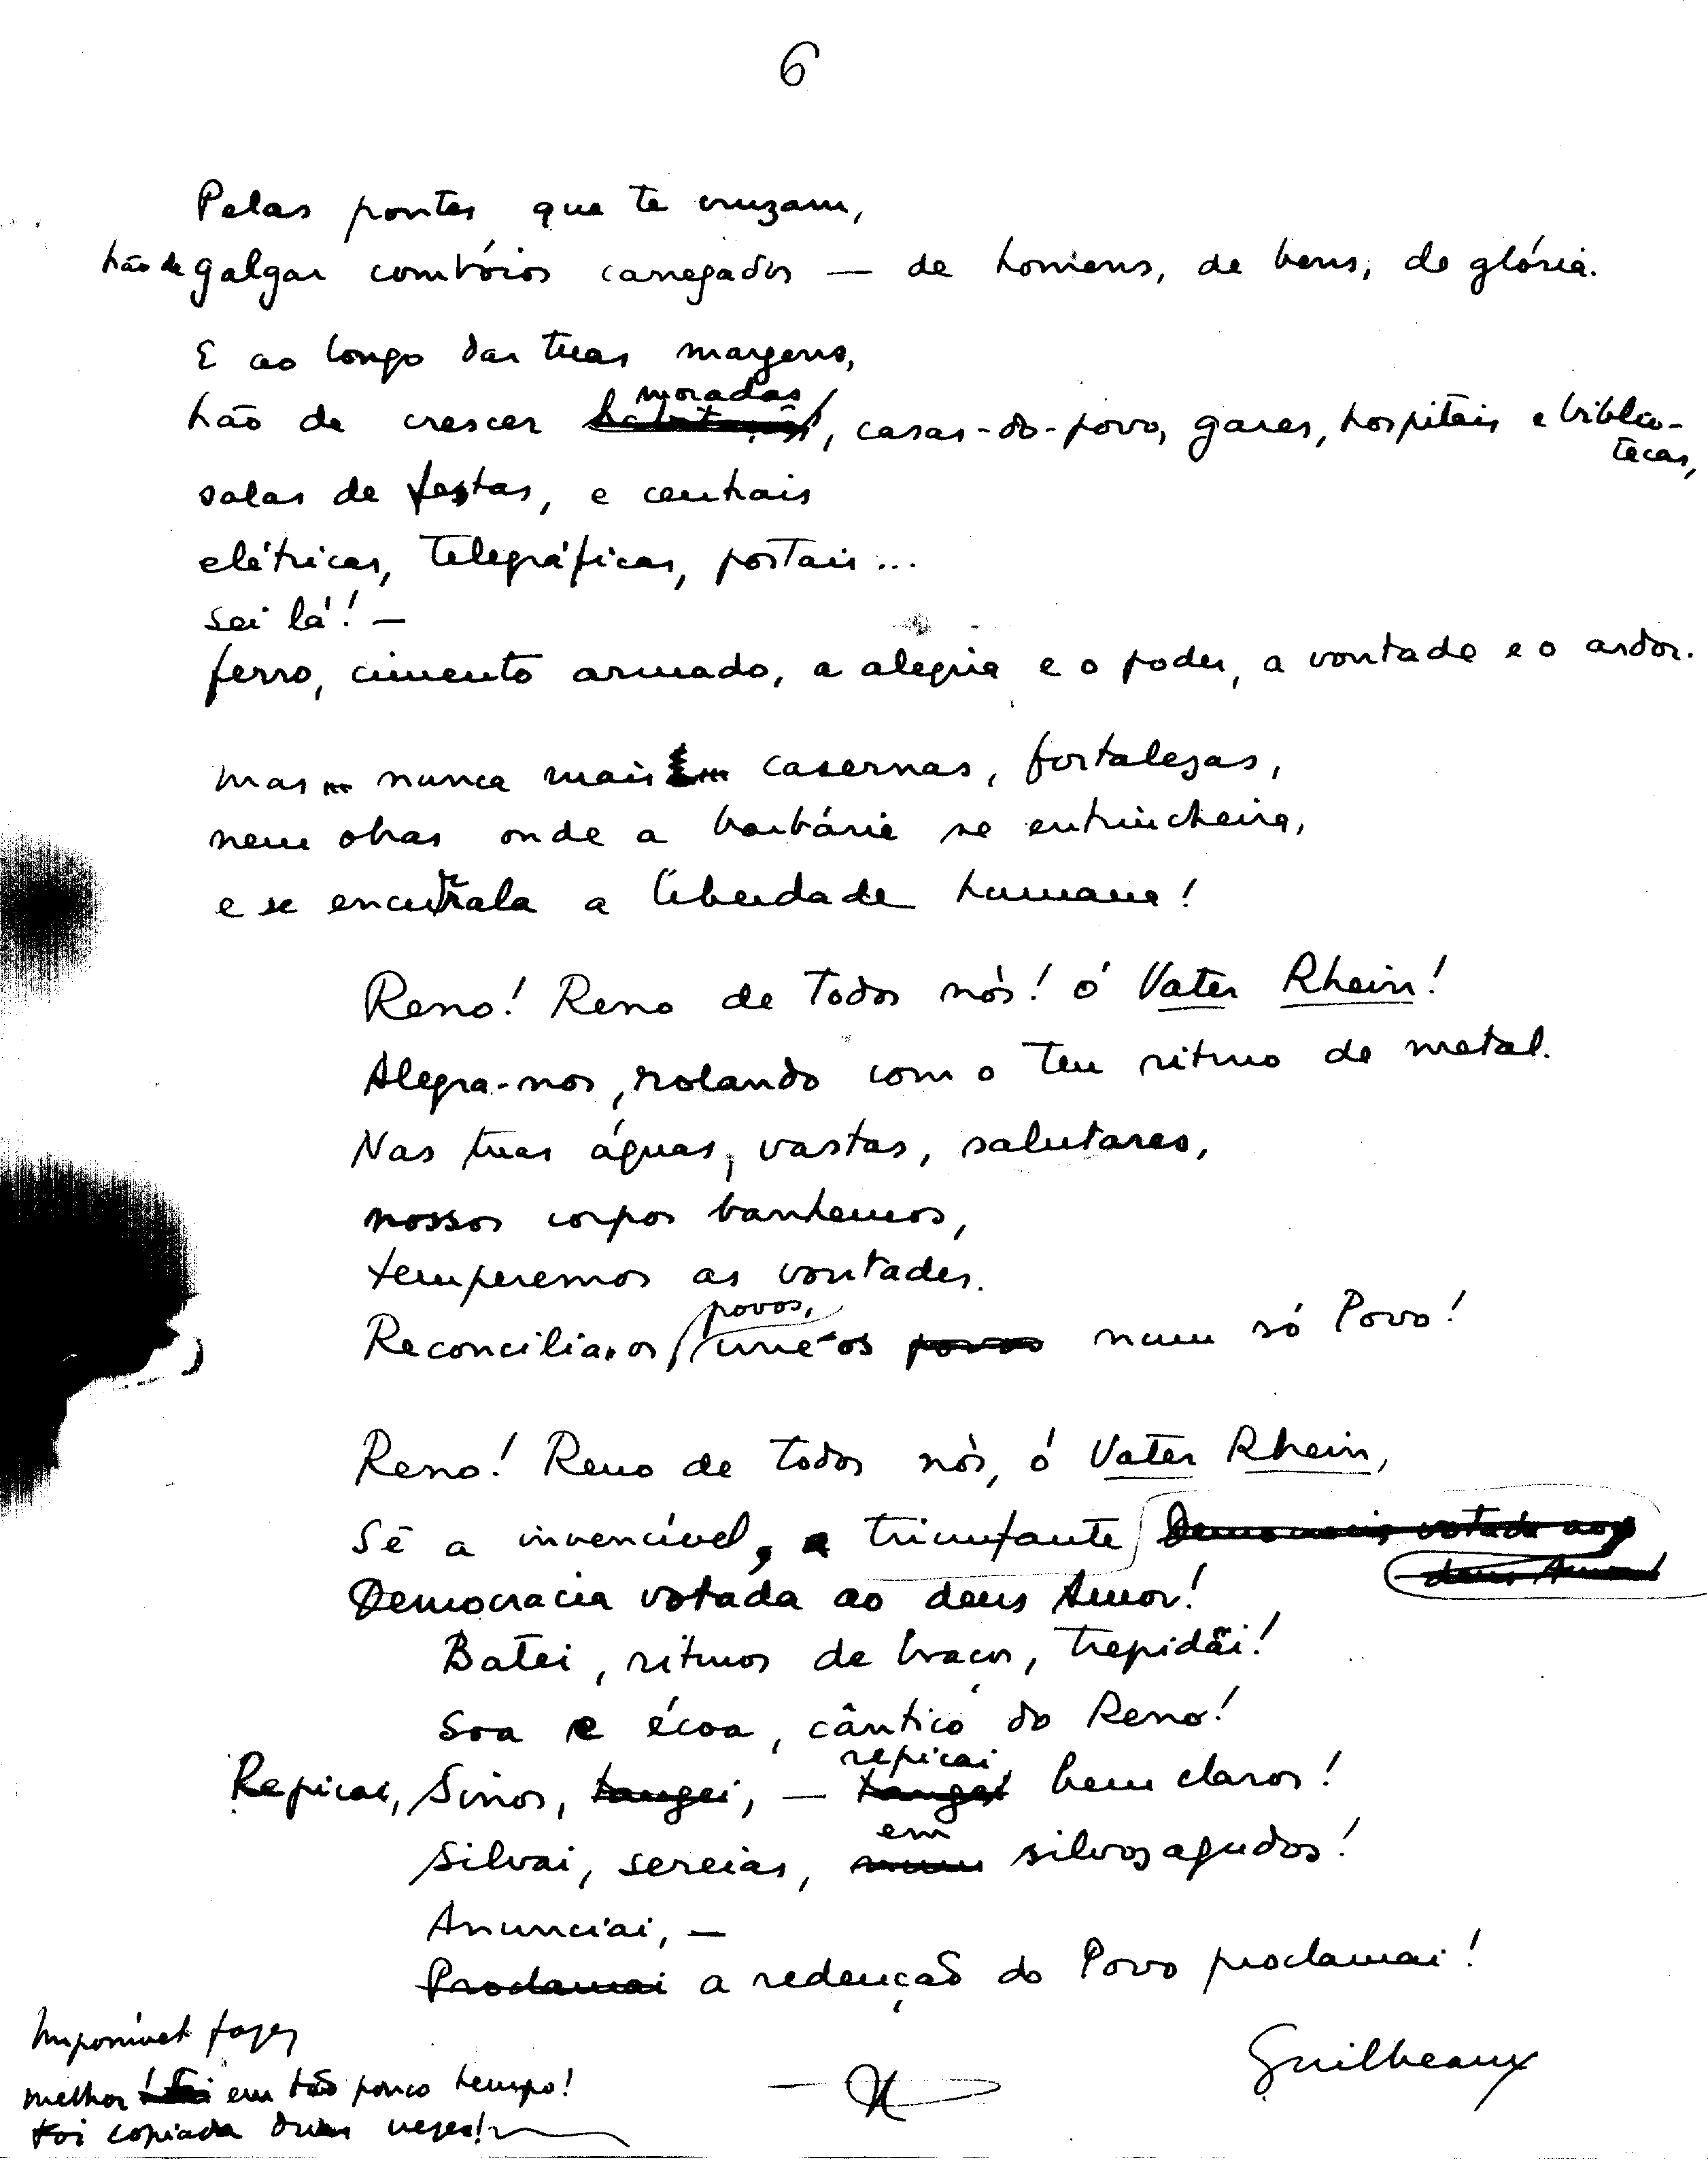 6
Pelas pontes que te cruzam,
hão de galgar combóios carregados — de homens, de bens, de glória.
E ao longo das tuas margens,
moradas
hão de crescer habitações, casas-do-povo, gares, hospitais e biblio-
tecas,
salas de festas, e centrais
elétricas, telegráficas, postais...
sei lá! —
ferro, cimento armado, a alegria e o poder, a vontade e o ardor.
mas... nunca mais ... casernas, fortalezas,
nem obras onde a barbárie se entrincheira,
e se encurrala a liberdade humana!
Reno! Reno de todos nós! ó Vater Rhein!
Alegra-nos, rolando com o teu ritmo de metal.
Nas tuas águas, vastas, salutares,
nossos corpos banhemos,
temperemos as vontades.
povos,
Reconcilia os une-os povos num só Povo!
Reno! Reno de todos nós, ó Vater Rhein,
Sê a invencível, a triunfante Democracia votada ao
deus Amor!
Democracia votada ao deus Amor!
Batei, ritmos de braços, trepidai!
Soa e écoa, cântico do Reno!
repicai
Repicai, Sinos, tangei, — tangei bem claros!
em
Silvai, sereias, num silvos agudos!
Anunciai, —
Proclamai a redenção do Povo proclamai!
Impossível fazer
melhor em tão pouco tempo!
Foi copiada duas vezes!
Guilbeaux